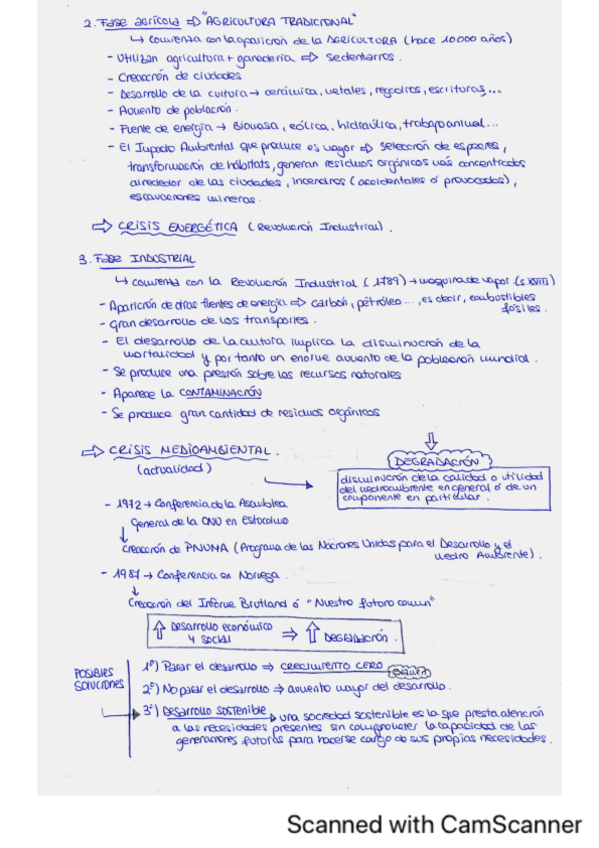 2. Fase agrícola ⇒ "AGRICULTURA TRADICIONAL"
↳ Comienza con la aparición de la AGRICULTURA (hace 10000 años)
- Utilizan agricultura + ganadería ⇒ sedentarios.
- Creación de ciudades
- Desarrollo de la cultura → cerámica, metales, regadíos, escrituras,...
- Aumento de población.
- Fuente de energía → Biomasa, eólica, hidraúlica, trabajo animal...
- El Impacto Ambiental que produce es mayor ⇒ selección de especies,
transformación de hábitats, generan residuos orgánicos más concentrados
alrededor de las ciudades, incendios (accidentales ó provocados),
excavaciones mineras.
⇒ CRISIS ENERGÉTICA (Revolución Industrial).
3. Fase INDUSTRIAL
↳ comienza con la Revolución Industrial (1789) → maquina de vapor (s.XVIII)
- Aparición de otras fuentes de energía ⇒ carbón, petróleo..., es decir, combustibles
fósiles.
- Gran desarrollo de los transportes.
- El desarrollo de la cultura implica la disminución de la
mortalidad y por tanto un enorme aumento de la población mundial.
- Se produce una presión sobre los recursos naturales
- Aparece la CONTAMINACIÓN
- Se produce gran cantidad de residuos orgánicos
⇒ CRISIS MEDIOAMBIENTAL.
(actualidad)
DEGRADACIÓN
disminución de la calidad o utilidad
del medioambiente en general ó de un
componente en particular.
- 1972 → Conferencia de la Asamblea
General de la ONU en Estocolmo
↓
Creación de PNUMA (Programa de las Naciones Unidas para el Desarrollo y el
Medio Ambiente).
- 1987 → Conferencia en Noruega.
↓
Creación del Informe Brutland ó "Nuestro futuro común"
⇑ Desarrollo económico y social ⇒ ⇑ DEGRADACIÓN.
POSIBLES
SOLUCIONES
1º) Parar el desarrollo ⇒ CRECIMIENTO CERO
2º) No parar el desarrollo ⇒ aumento mayor del desarrollo.
3º) Desarrollo SOSTENIBLE → una sociedad sostenible es la que presta atención
a las necesidades presentes sin comprometer la capacidad de las
generaciones futuras para hacerse cargo de sus propias necesidades.
Scanned with CamScanner